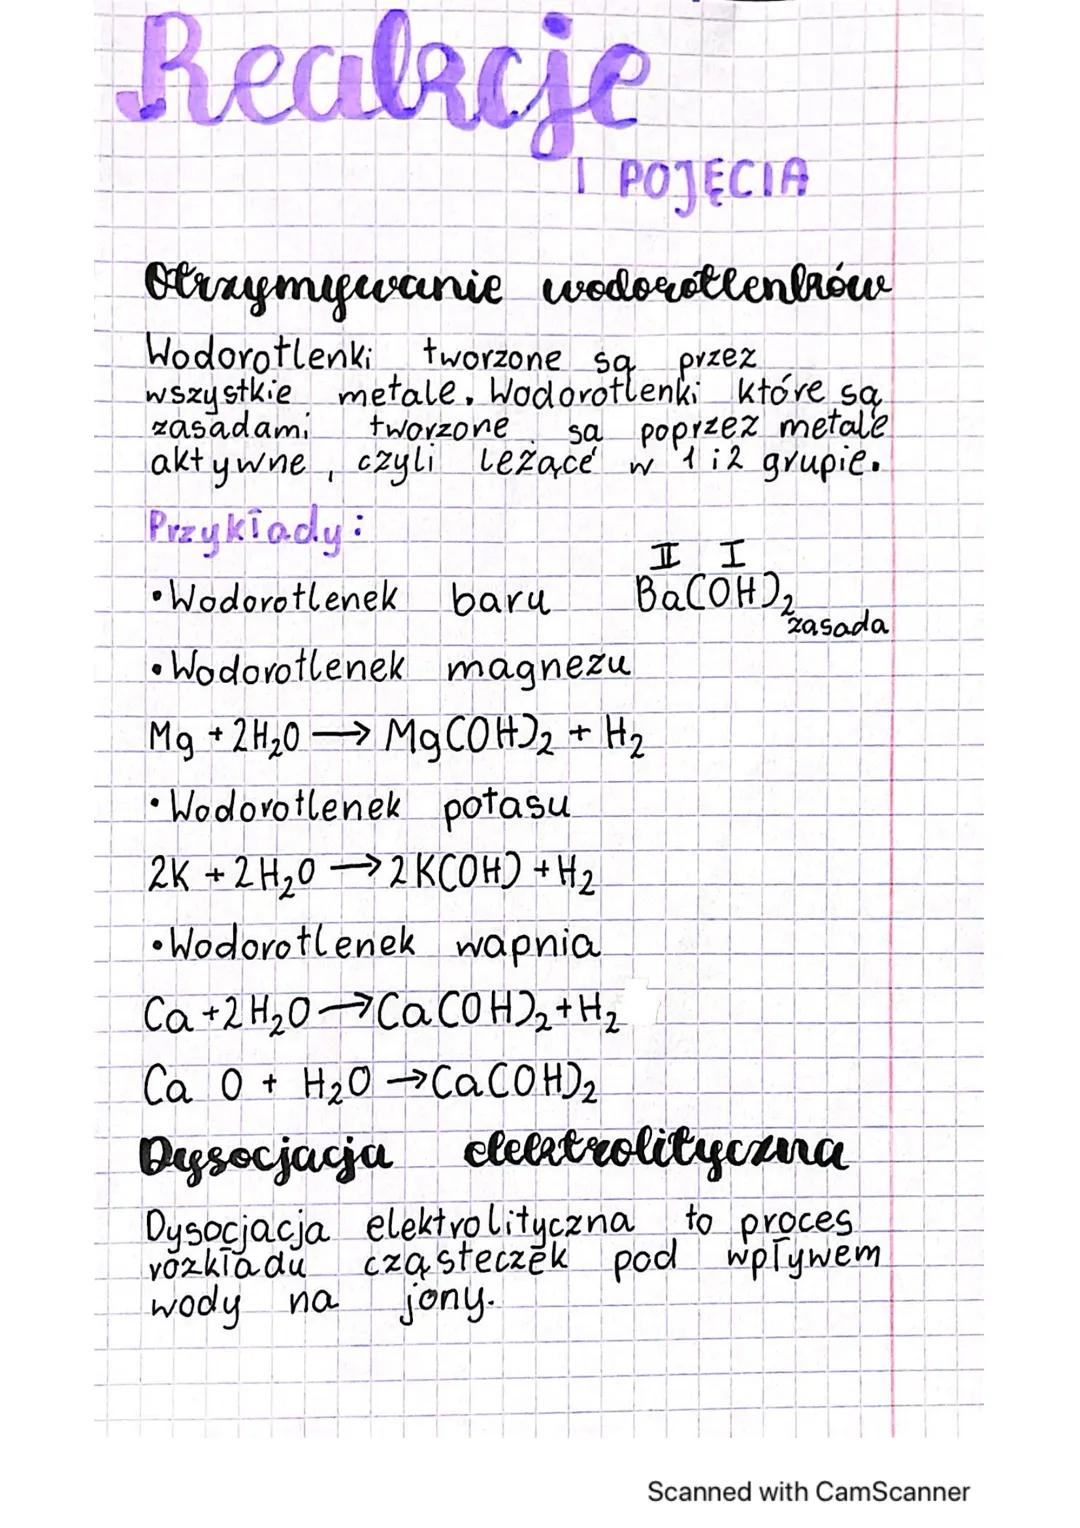 Reakcje
I POJĘCIA
Otrzymywanie wodorotlenków
Wodorotlenki tworzone są przez
wszystkie metale. Wodorotlenki które są
zasadami tworzone są poprzez metale
aktywne, czyli leżące w 1 i 2 grupie.
Przykłady:
II I
•Wodorotlenek baru Ba(OH)₂
zasada
•Wodorotlenek magnezu
Mg + 2H₂O → Mg(OH)₂ + H₂
•Wodorotlenek potasu
2K + 2H₂O → 2K(OH) + H₂
•Wodorotlenek wapnia
Ca + 2H₂O → Ca(OH)₂ + H₂
Ca O + H₂O → Ca(OH)₂
Dysocjacja elektrolityczna
Dysocjacja elektrolityczna to proces
rozkładu cząsteczek pod wpływem
wody na jony.
Scanned with CamScanner